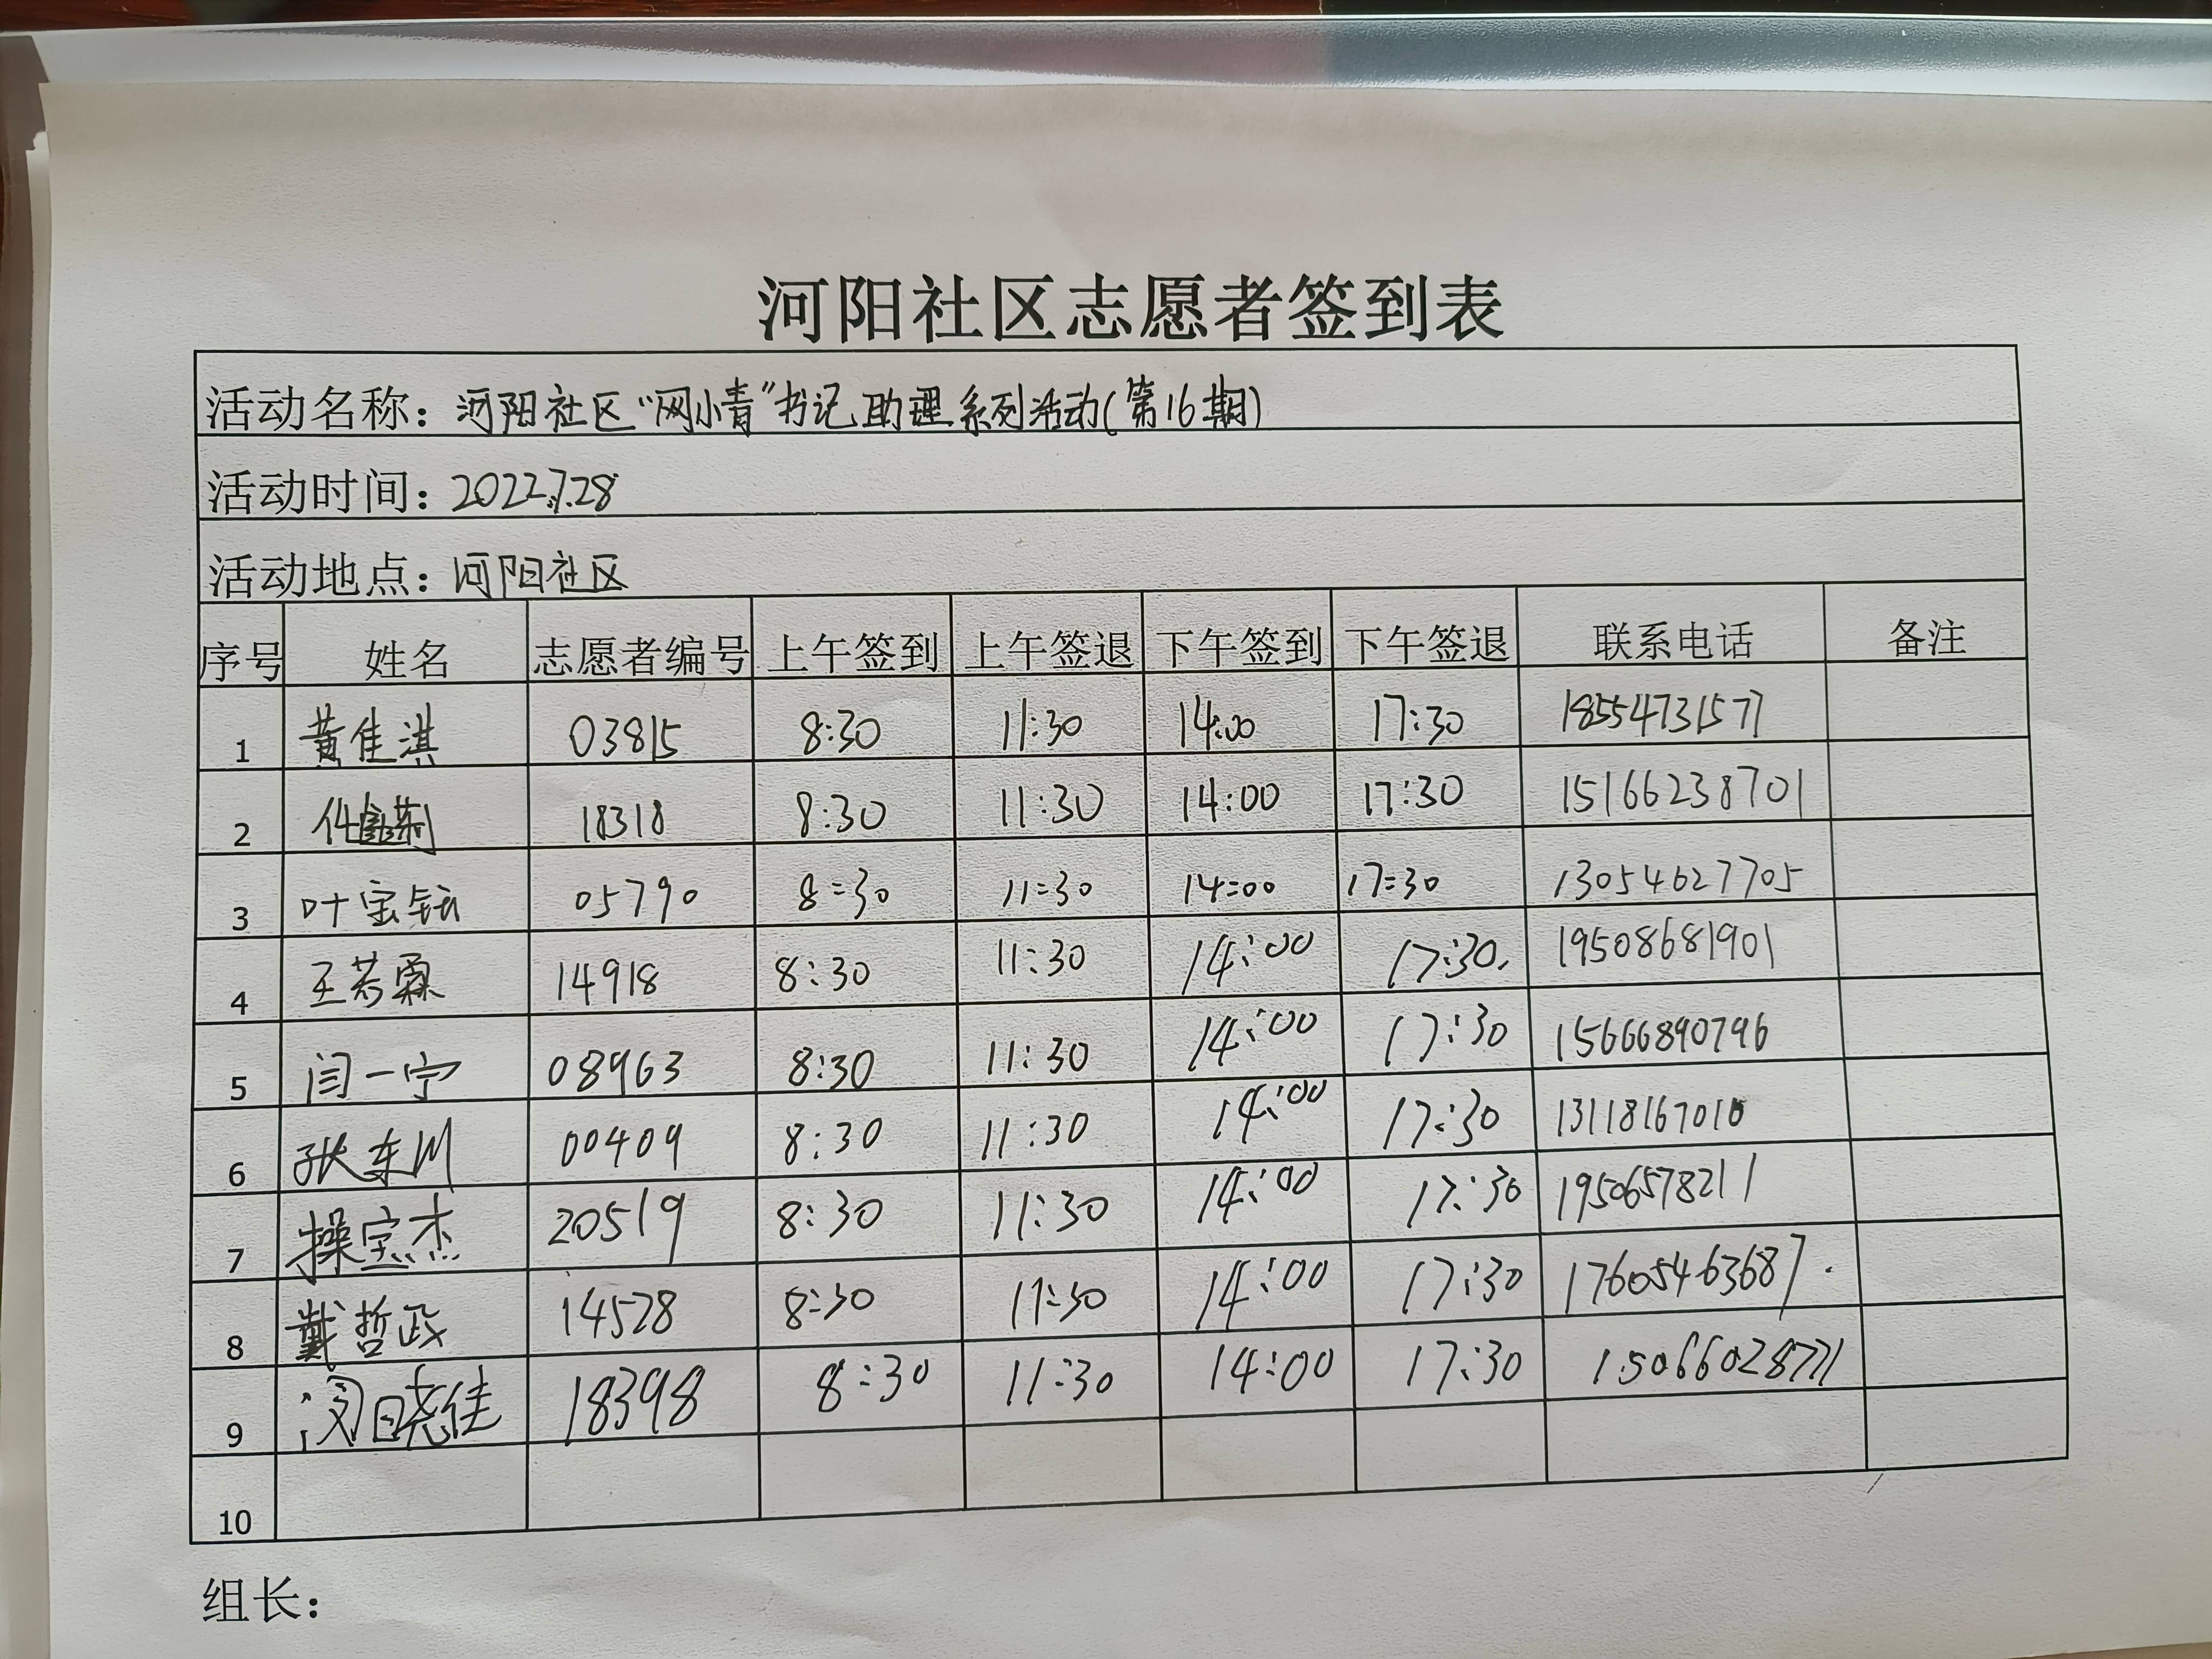 河阳社区志愿者签到表
活动名称：河阳社区“网小青”书记助理系列活动(第16期)
活动时间：2022.7.28
活动地点：河阳社区
序号 姓名 志愿者编号 上午签到 上午签退 下午签到 下午签退 联系电话 备注
1 黄佳淇 03815 8:30 11:30 14:00 17:30 18554731571
2 18318 8:30 11:30 14:00 17:30 15166238701
3 叶宝钰 05790 8:30 11:30 14:00 17:30 13054627705
4 王若霖 14918 8:30 11:30 14:00 17:30. 19508681901
5 闫一宁 08963 8:30 11:30 14:00 17:30 15666890796
6 张东川 00409 8:30 11:30 14:00 17:30
7 操宝杰 20519 8:30 11:30 14:00 17:30 19506578211
8 戴哲政 14528 8:30 11:30 14:00 17:30 17605463687.
9 闵晓佳 18398 8:30 11:30 14:00 17:30 15066028771
10
组长：